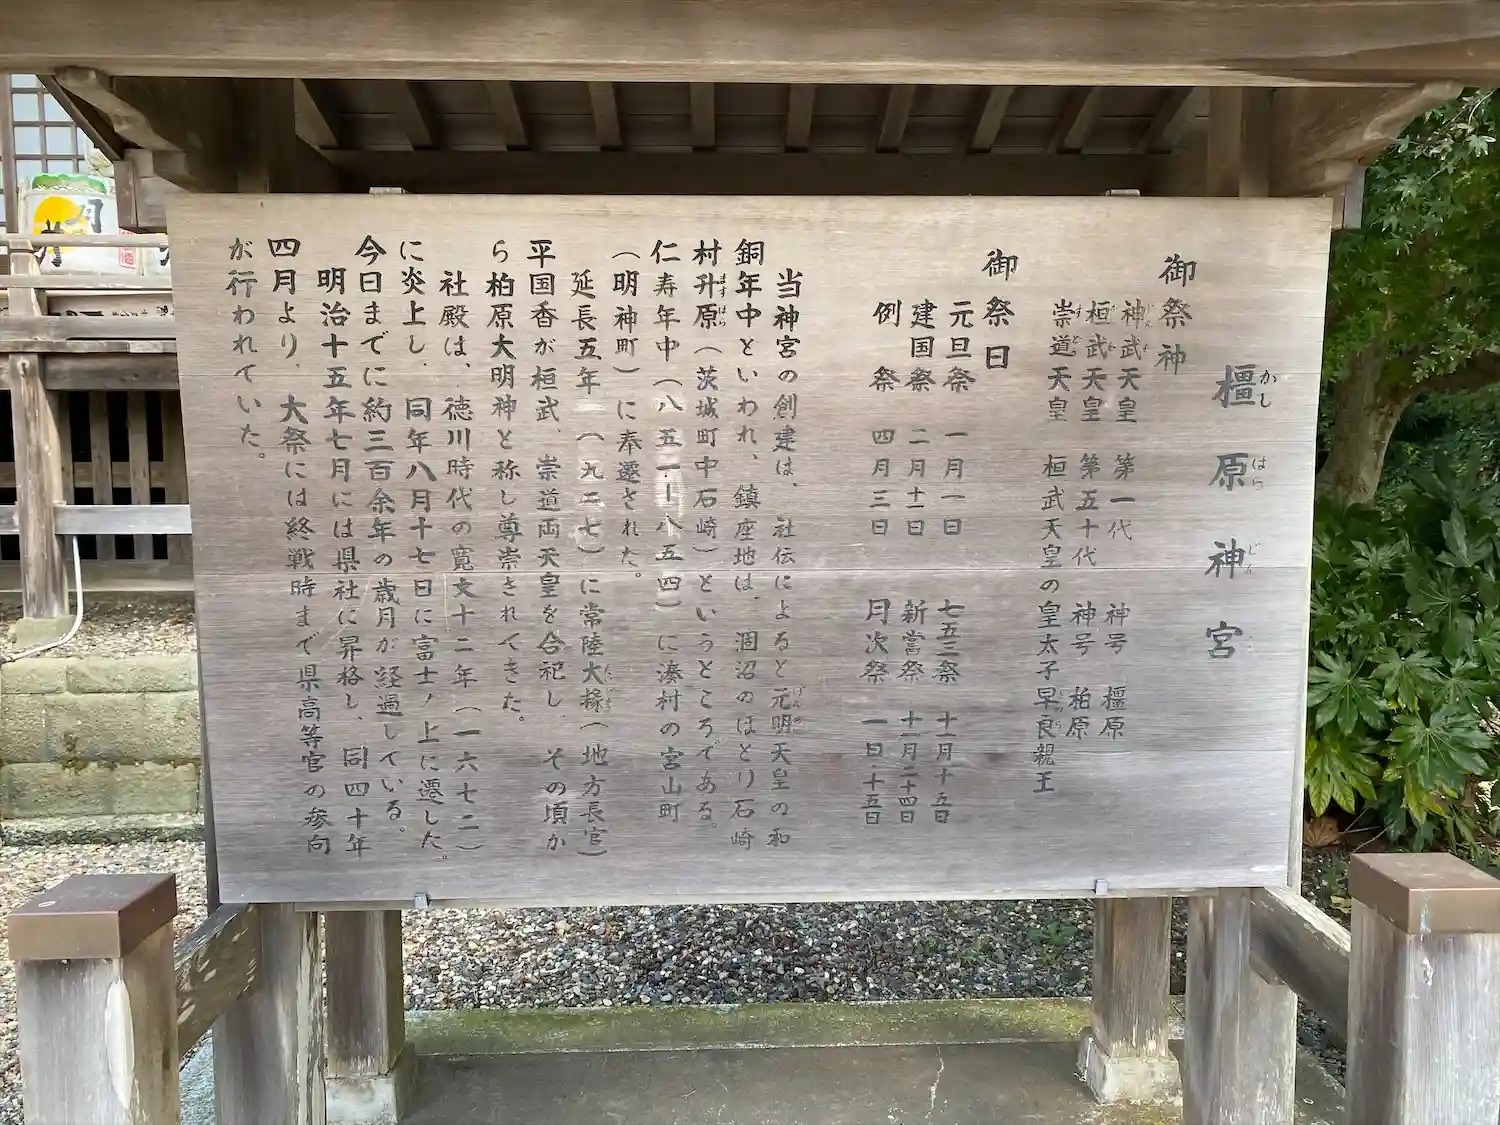 橿原神宮
御祭神
神武天皇 第一代 神号 橿原
桓武天皇 第五十代 神号 柏原
崇道天皇 桓武天皇の皇太子早良親王
御祭日
元旦祭 一月一日 七五三祭 十一月十五日
建国祭 二月十一日 新嘗祭 十一月二十四日
例祭 四月三日 月次祭 一日、十五日
当神宮の創建は、社伝によると元明天皇の和
銅年中といわれ、鎮座地は、涸沼のほとり石崎
村升原(茨城町中石崎)というところである。
仁寿年中(八五一ー八五四)に湊村の宮山町
(明神町)に奉遷された。
延長五年(九二七)に常陸大掾(地方長官)
平国香が桓武、崇道両天皇を合祀し、その頃か
ら柏原大明神と称し尊崇されてきた。
社殿は、徳川時代の寛文十二年(一六七二)
に炎上し、同年八月十七日に富士ノ上に遷した。
今日までに約三百余年の歳月が経過している。
明治十五年七月には県社に昇格し、同四十年
四月より、大祭には終戦時まで県高等官の参向
が行われていた。